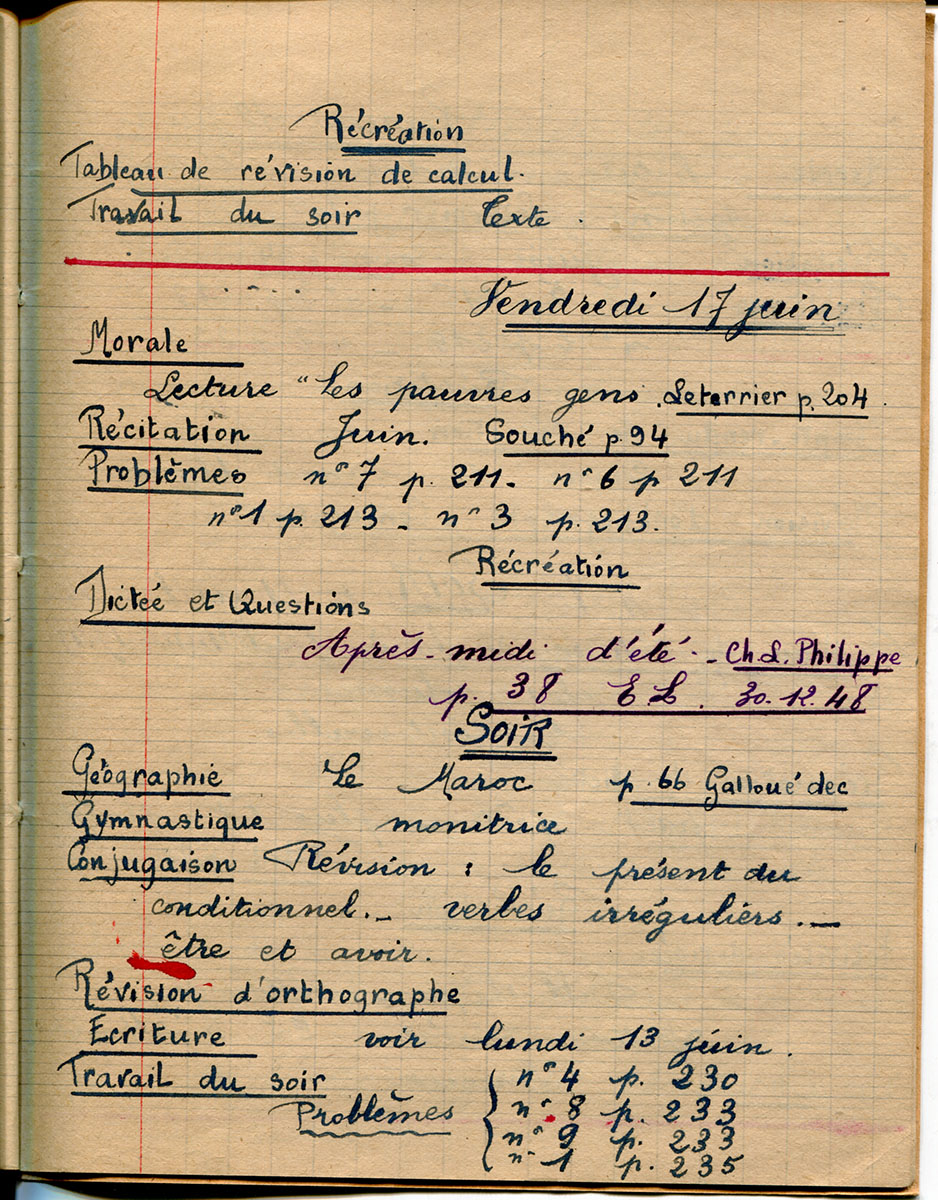 Récréation
Tableau de révision de calcul.
Travail du soir Texte.
Vendredi 17 juin
Morale
Lecture "Les pauvres gens. Leterrier p. 204.
Récitation Juin. Souché p. 94
Problèmes n° 7 p. 211. n° 6 p 211
n° 1 p. 213 - n° 3 p. 213.
Récréation
Dictée et Questions
Après-midi d'été. - Ch. L. Philippe
p. 38 E L. 30.12.48
SOIR
Géographie Le Maroc p. 66 Gallouédec
Gymnastique monitrice
Conjugaison Révision : le présent du
conditionnel. - verbes irréguliers. -
être et avoir.
Révision d'orthographe
Ecriture voir lundi 13 juin.
Travail du soir
Problèmes { n° 4 p. 230
n° 8 p. 233
n° 9 p. 233
n° 1 p. 235